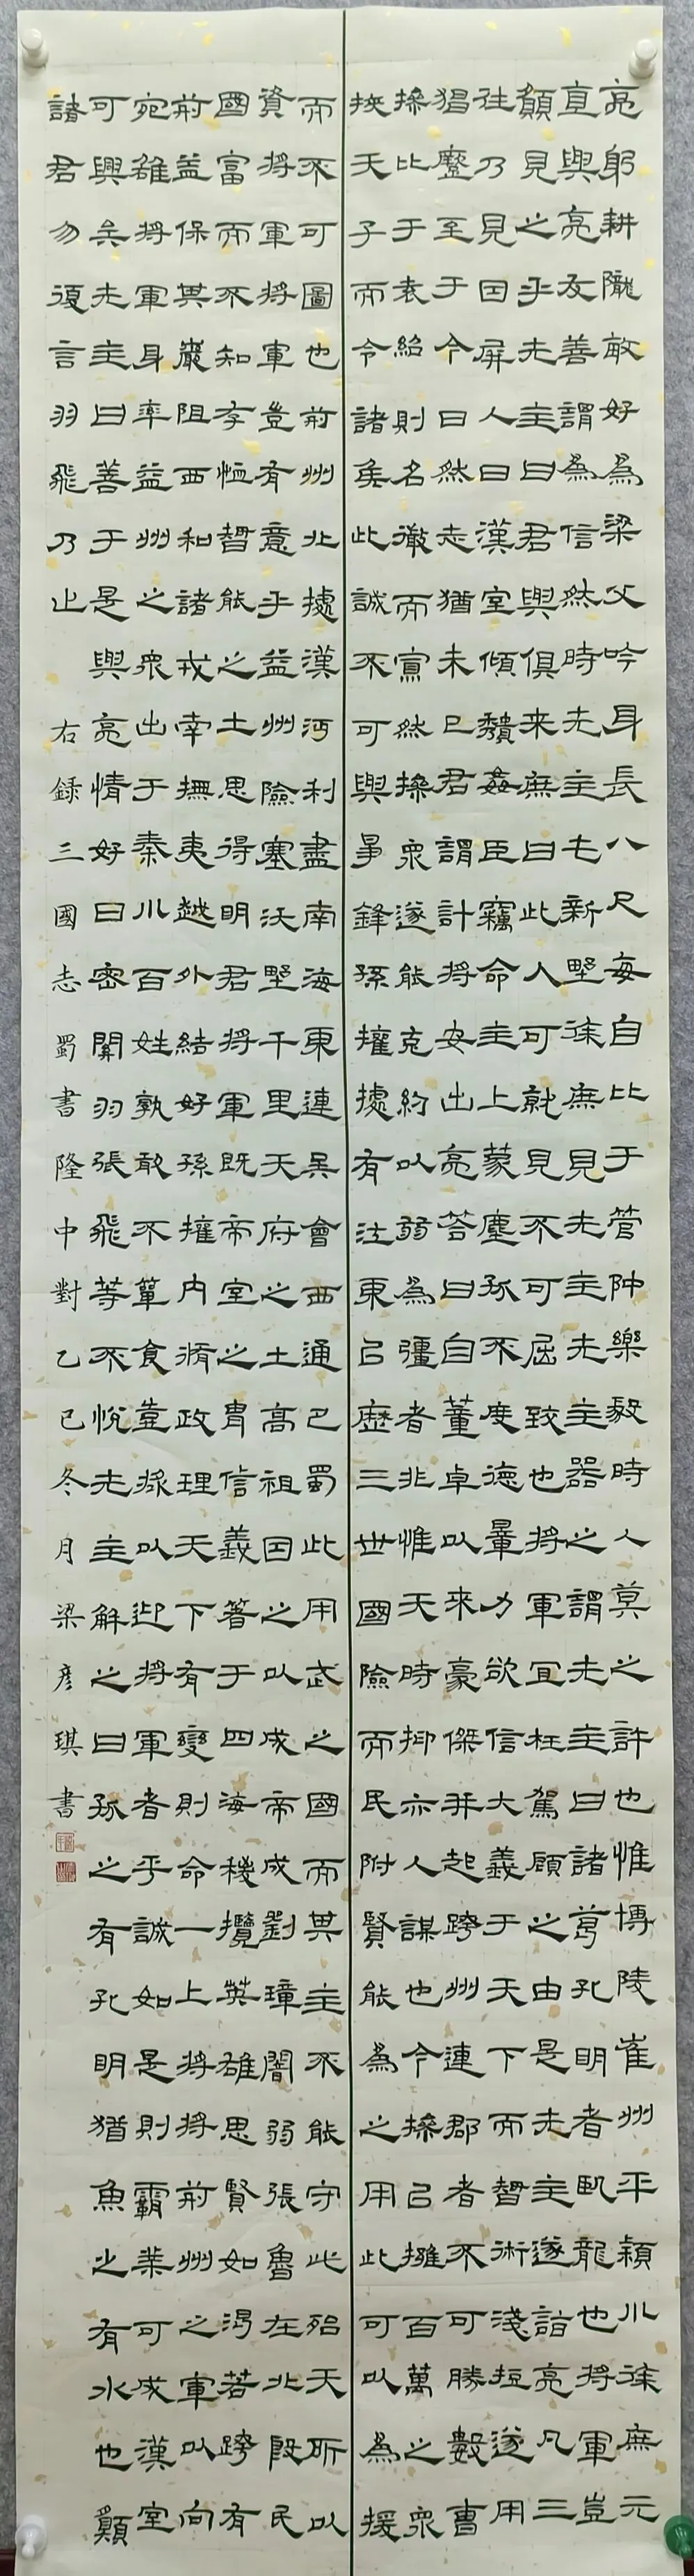 亮躬耕隴畝好為梁父吟身長八尺每自比于管仲樂毅時人莫之許也惟博陵崔州平潁川徐庶元
直與亮友善謂為信然時先主屯新野徐庶見先主先主器之謂先主曰諸葛孔明者臥龍也將軍豈
願見之乎先主曰君與俱来庶曰此人可就見不可屈致也將軍宜枉駕顧之由是先主遂詣亮凡三
往乃見因屏人曰漢室傾頹姦臣竊命主上蒙塵孤不度德量力欲信大義于天下而智術淺短遂用
猖蹷至于今日然志猶未已君謂計將安出亮答曰自董卓以来豪傑并起跨州連郡者不可勝數曹
操比于袁紹則名微而寡然操衆遂能克約以弱為彊者非惟天時抑亦人謀也今操已擁百萬之衆
挾天子而令諸矦此誠不可與爭鋒孫權據有江東已歷三世國險而民附賢能為之用此可以為援
而不可圖也荊州北據漢沔利盡南海東連吳會西通巴蜀此用武之國而其主不能守此殆天所以
資將軍將軍豈有意乎益州險塞沃野千里天府之土高祖因之以成帝成劉璋闇弱張魯在北殷民
國富而不知存恤智能之士思得明君將軍既帝室之胄信義著于四海總攬英雄思賢如渴若跨有
荊益保其巖阻西和諸戎南撫夷越外結好孫權内脩政理天下有變則命一上將將荊州之軍以向
宛雒將軍身率益州之衆出于秦川百姓孰敢不簞食壺漿以迎將軍者乎誠如是則霸業可成漢室
可興矣先主曰善于是與亮情好日密關羽張飛等不悅先主解之曰孤之有孔明猶魚之有水也願
諸君勿復言羽飛乃止 右録三國志蜀書隆中對乙巳冬月梁彥琪書